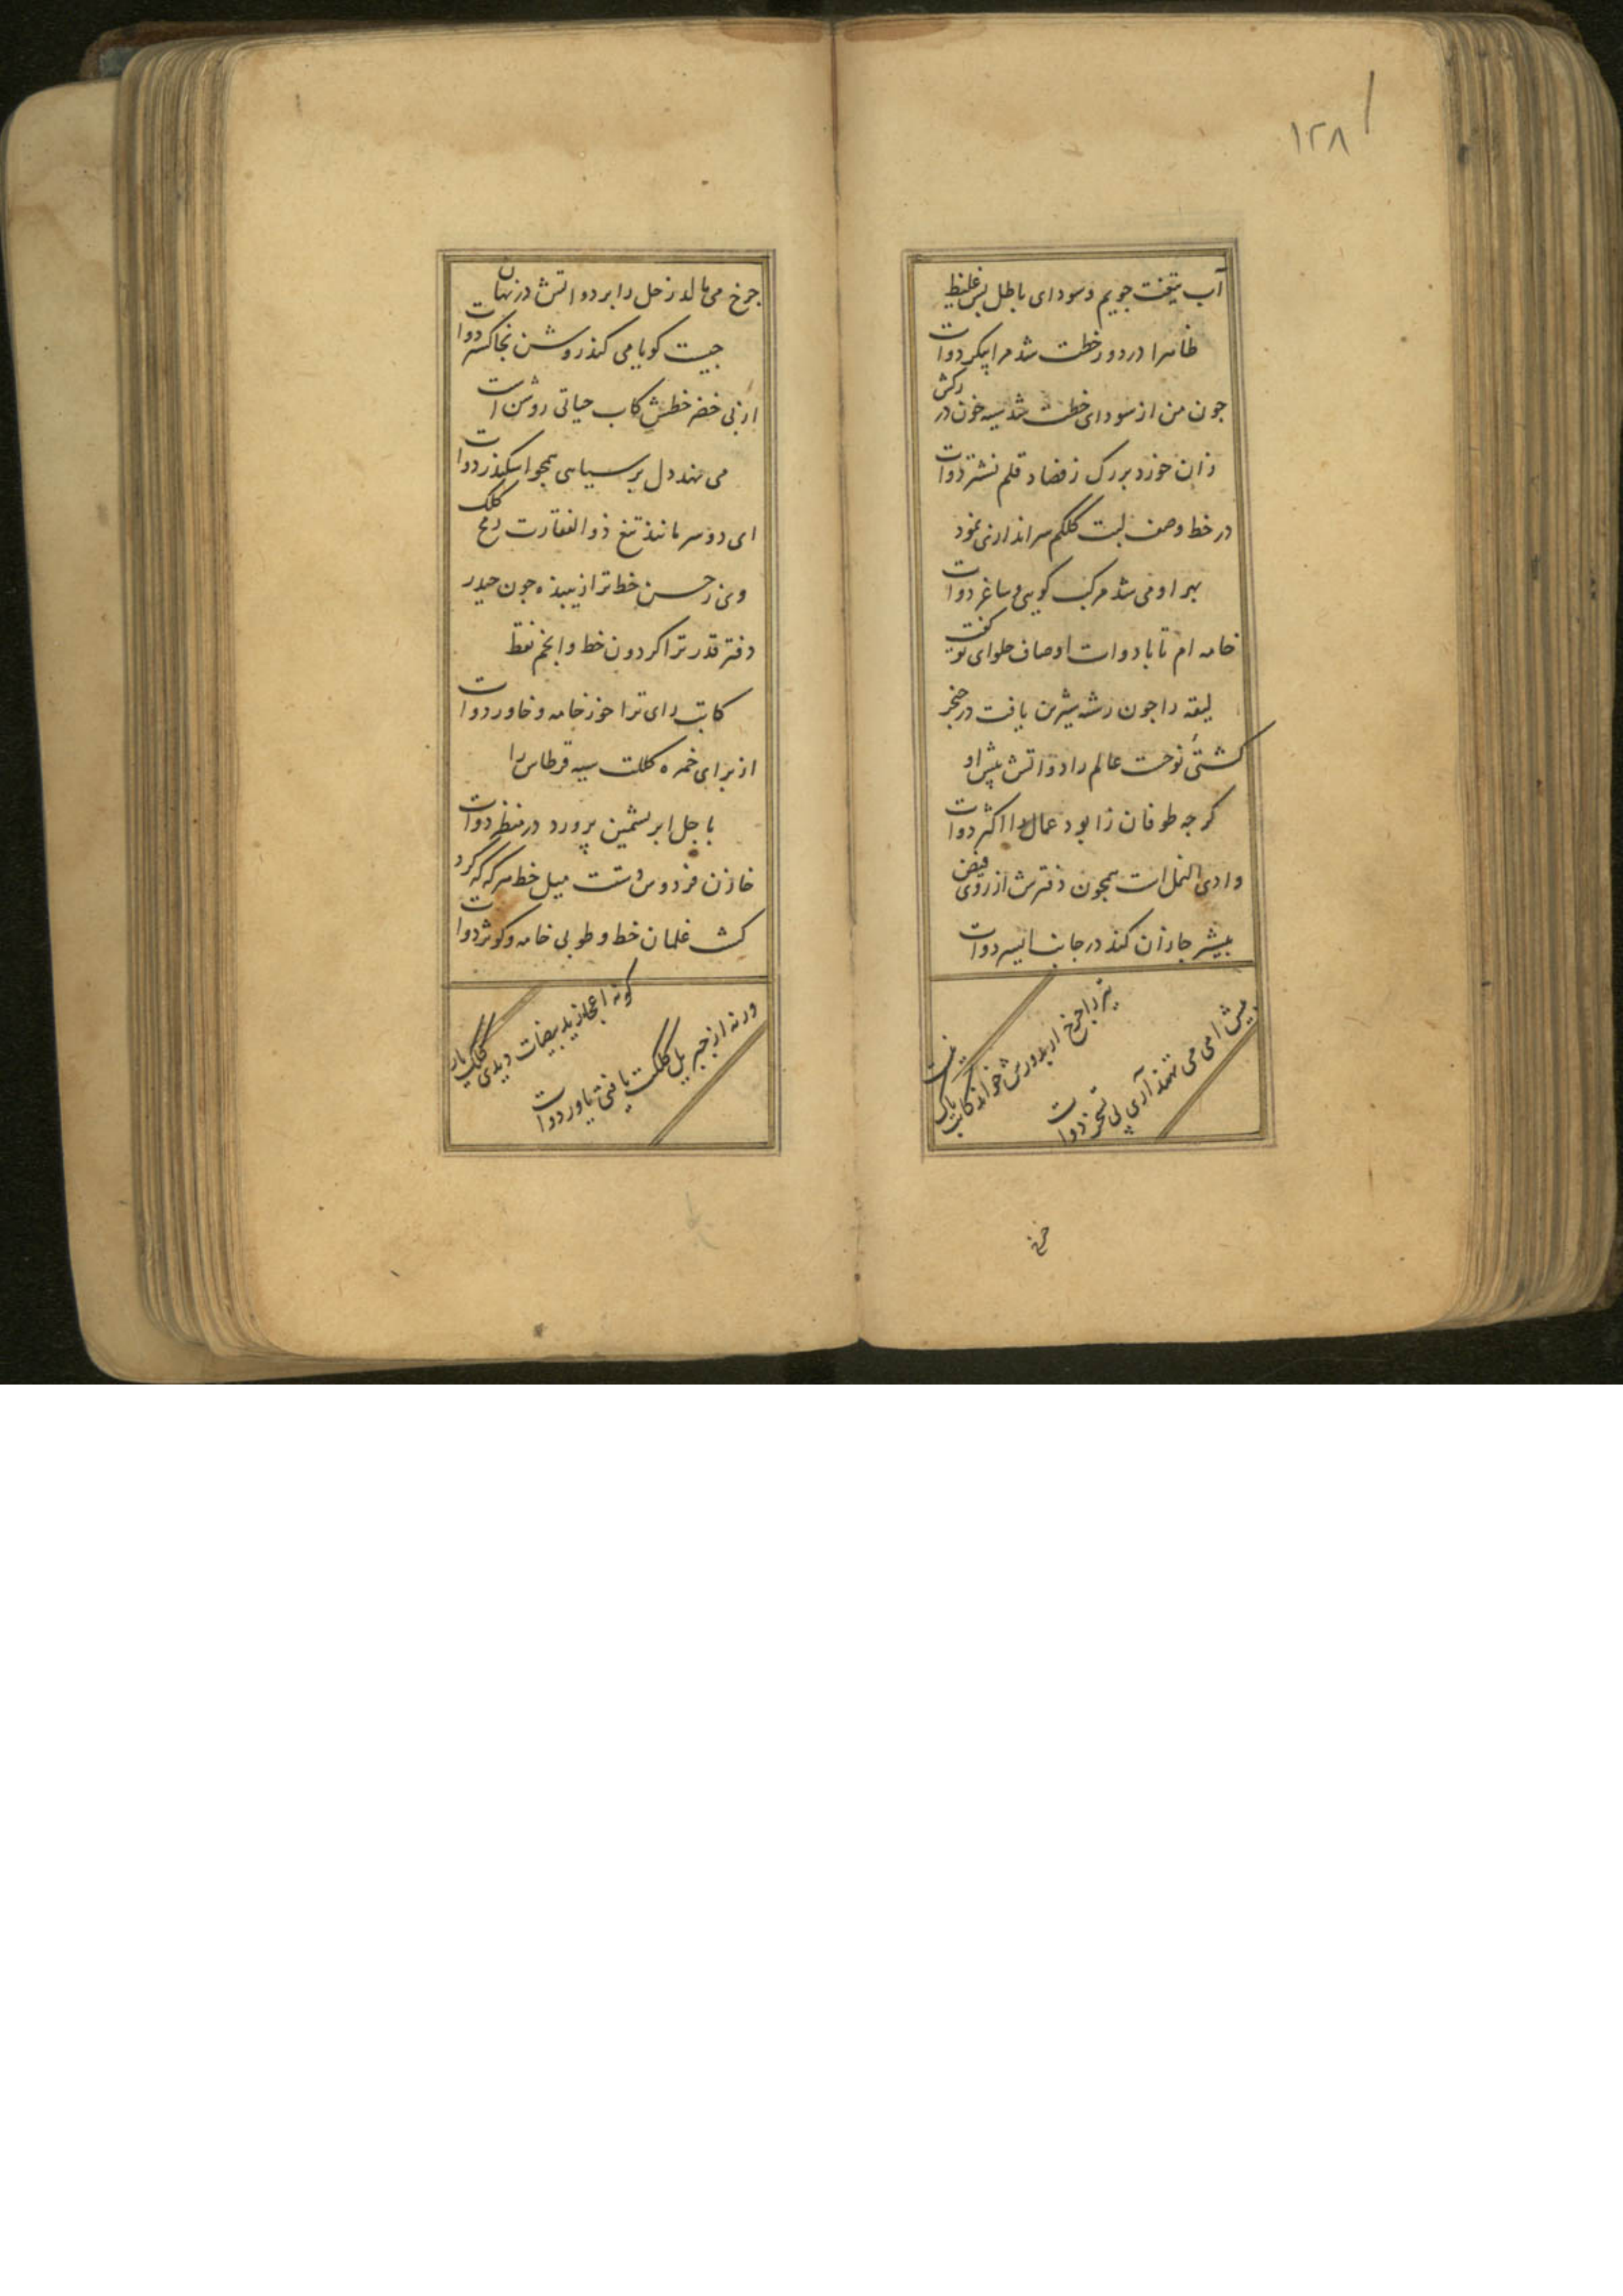 ١٢٨
آب تیغت جویم و سودای باطل بس غلیظ
ظاهرا در دور خطت شد مرا پیکر دوات
جون من از سودای خطت شد سیه خون در رکش
زان خورد بر رک ز فصاد قلم نشتر دوات
در خط وصف لبت کلکم سراندازی نمود
بهر او می شد مرکب کویی و ساغر دوات
خامه ام تا با دوات اوصاف حلوای تو کفت
لیقه را جون رشته شیرین یافت در حنجر
کشتی نوحست عالم را دواتش پیش او
کرجه طوفان زا بود عمال را اکثر دوات
وادی النمل است همجون دفترش از روی فیض
بیشتر جا زان کند در جانب ایسر دوات
تیر را جرخ ار بدورش خواند کاتب باک نیست
پیش امی می نهند آری پی تسخر دوات
جرخ
جرخ می مالد زحل را بر دواتش در نهان
جیست کویا می کند روشن بخاکستر دوات
از پی خضر خطش کاب حیاتی روشن است
می نهد دل بر سیاهی همجو اسکندر دوات
ای دو سر مانند تیغ ذوالفقارت رمح کلک
وی ز حسن خط ترا زیبنده جون حیدر
دفتر قدر ترا کردون خط و انجم نقط
کاتب رای ترا خور خامه و خاور دوات
از برای خمره کلکت سیه قرطاس را
با جل ابریشمین پرورد در منظر دوات
خازن فردوس دستت میل خط هر که که کرد
کشت غلمان خط و طوبی خامه و کوثر دوات
کونه اعجاز ید بیضات دیدی کلک بار
ورنه از جبریل کلکت یافتی یاور دوات